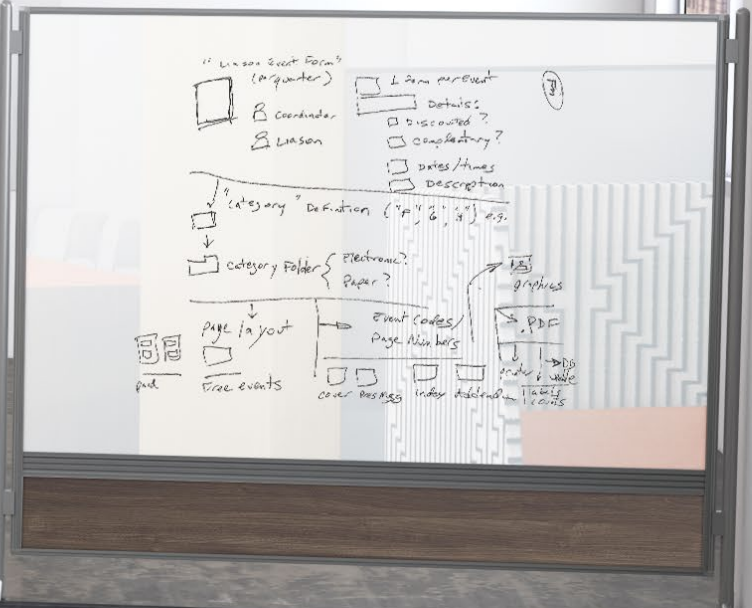 "Liason Event Form"
(per quarter)
Coordinator
Liason
1 Form per Event
Details:
Discounted?
Complentary?
Dates/times
Description
"Category" Definition ("P", 6, ) e.g.
Category Folder { Electronic?
Paper?
graphics
page layout
Event Codes/
Page Numbers
.PDF
Free events
cover
index
Addendum
labels